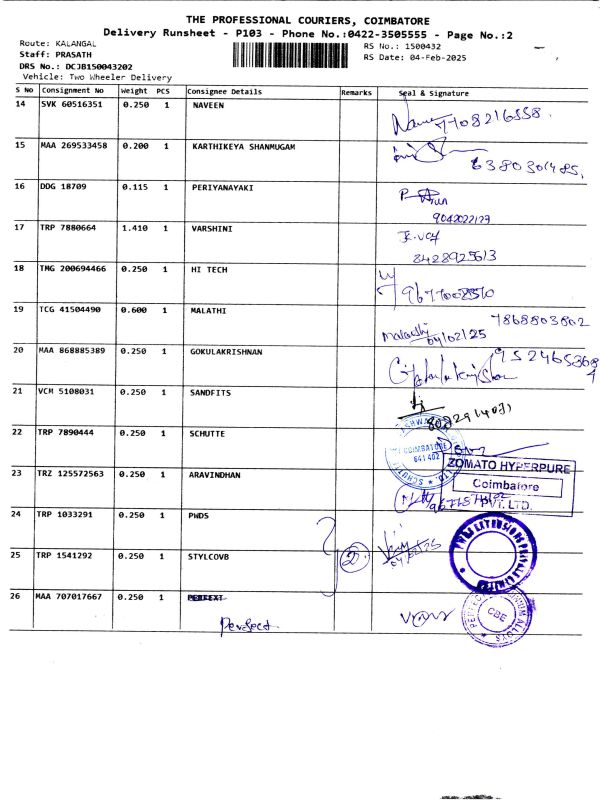 THE PROFESSIONAL COURIERS, COIMBATORE
Delivery Runsheet - P103 - Phone No.:0422-3505555 - Page No.:2
Route: KALANGAL
RS No.: 1500432
Staff: PRASATH
RS Date: 04-Feb-2025
DRS No.: DCJB150043202
Vehicle: Two Wheeler Delivery
S No Consignment No Weight PCS Consignee Details Remarks Seal & Signature
14 SVK 60516351 0.250 1 NAVEEN
7708216558.
15 MAA 269533458 0.200 1 KARTHIKEYA SHANMUGAM
6380301485.
16 DDG 18709 0.115 1 PERIYANAYAKI
9042022129
17 TRP 7880664 1.410 1 VARSHINI
8428925613
18 TMG 200694466 0.250 1 HI TECH
9677008510
19 TCG 41504490 0.600 1 MALATHI
7868803802
Malathi 04/02/25
20 MAA 868885389 0.250 1 GOKULAKRISHNAN
Gokulakrishnan
21 VCM 5108031 0.250 1 SANDFITS
22 TRP 7890444 0.250 1 SCHUTTE
COIMBATORE
641 402
ZOMATO HYPERPURE
23 TRZ 125572563 0.250 1 ARAVINDHAN
Coimbatore
PVT. LTD.
24 TRP 1033291 0.250 1 PWDS
2
04/02/25
25 TRP 1541292 0.250 1 STYLCOVB
26 MAA 707017667 0.250 1 PERFEXT
CBE
Perfect